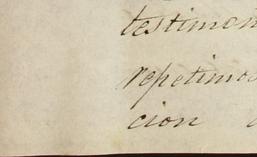 testimon
repetimos
cion